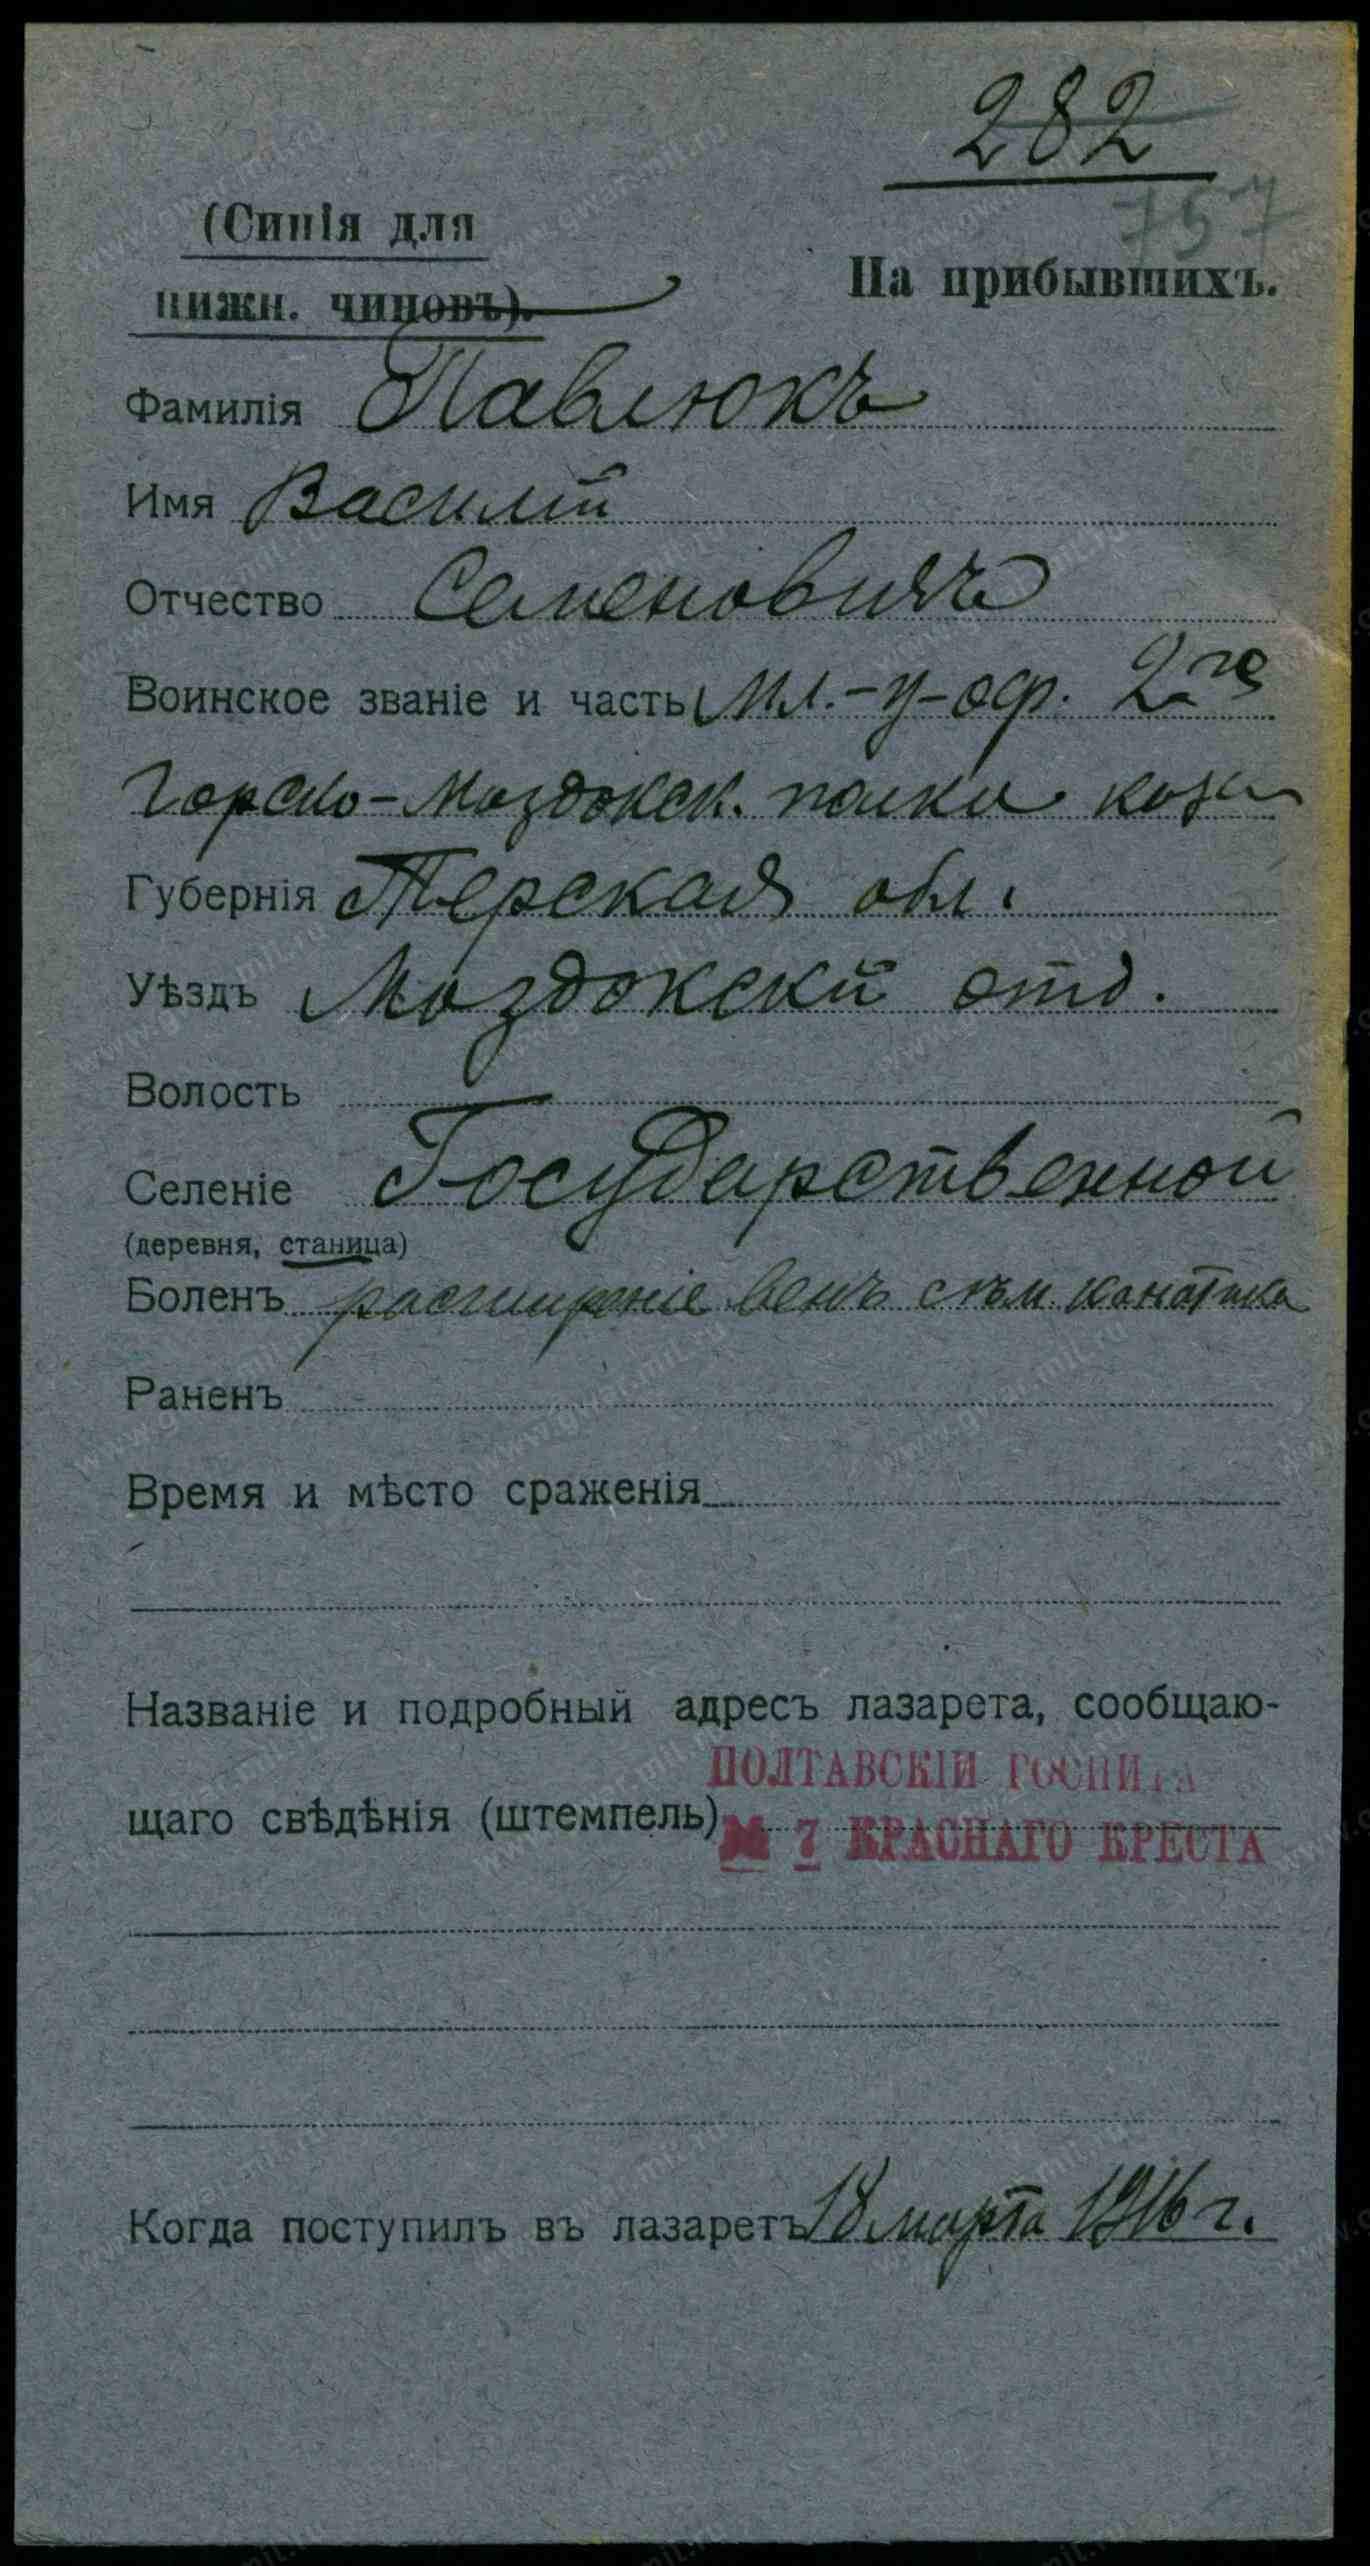 282
757
(Синія для
нижн. чиновъ).
На прибывшихъ.
Фамилія Павлюкъ
Имя Василій
Отчество Семеновичъ
Воинское званіе и часть Мл.-у-оф. 2го
Горско-Моздокск. полка каз.
Губернія Терская обл.
Уѣздъ Моздокскій отд.
Волость
Селеніе Государственной
(деревня, станица)
Боленъ расширеніе венъ сѣм. канатика
Раненъ
Время и мѣсто сраженія
Названіе и подробный адресъ лазарета, сообщаю-
ПОЛТАВСКІЙ ГОСПИТА
щаго свѣдѣнія (штемпель) № 7 КРАСНАГО КРЕСТА
Когда поступилъ въ лазаретъ 18 марта 1916 г.
www.gwar.mil.ru